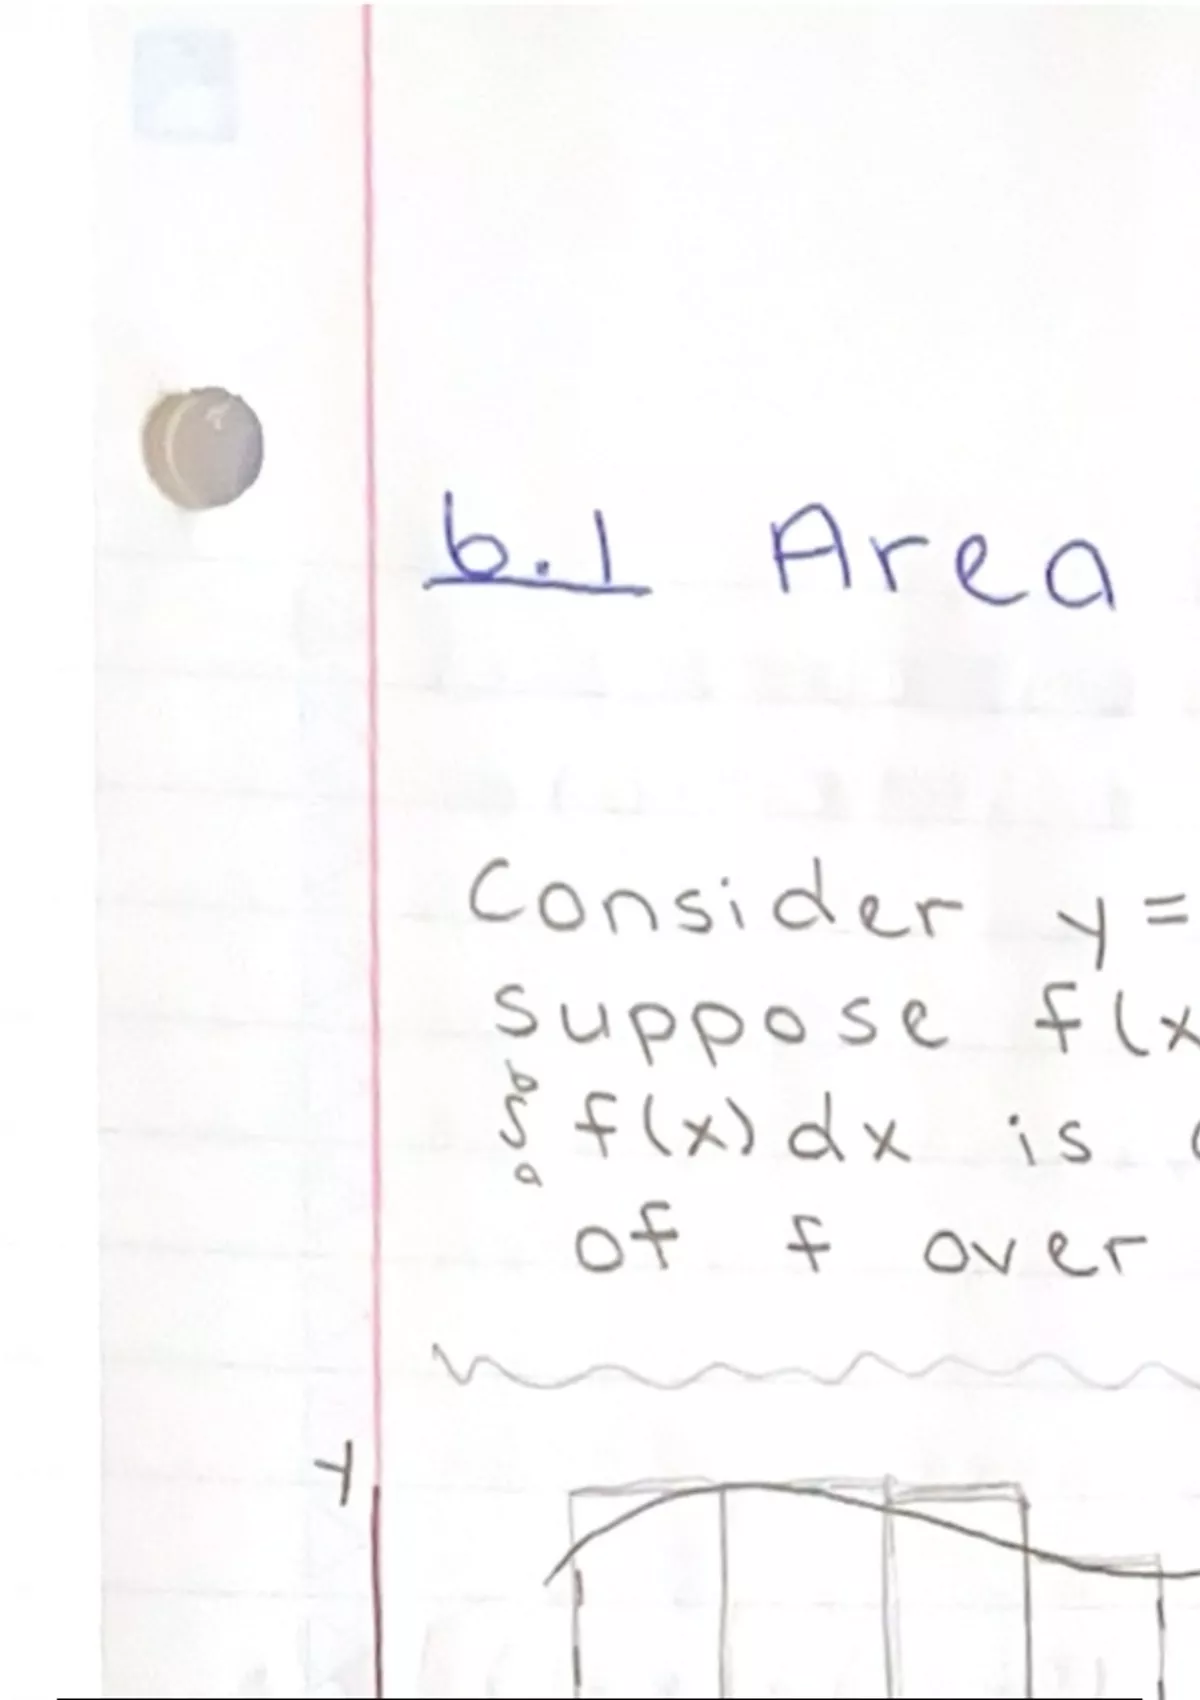 6.1 Area
Consider y =
suppose f(x
∫ₐᵇ f(x) dx is
of f over
y